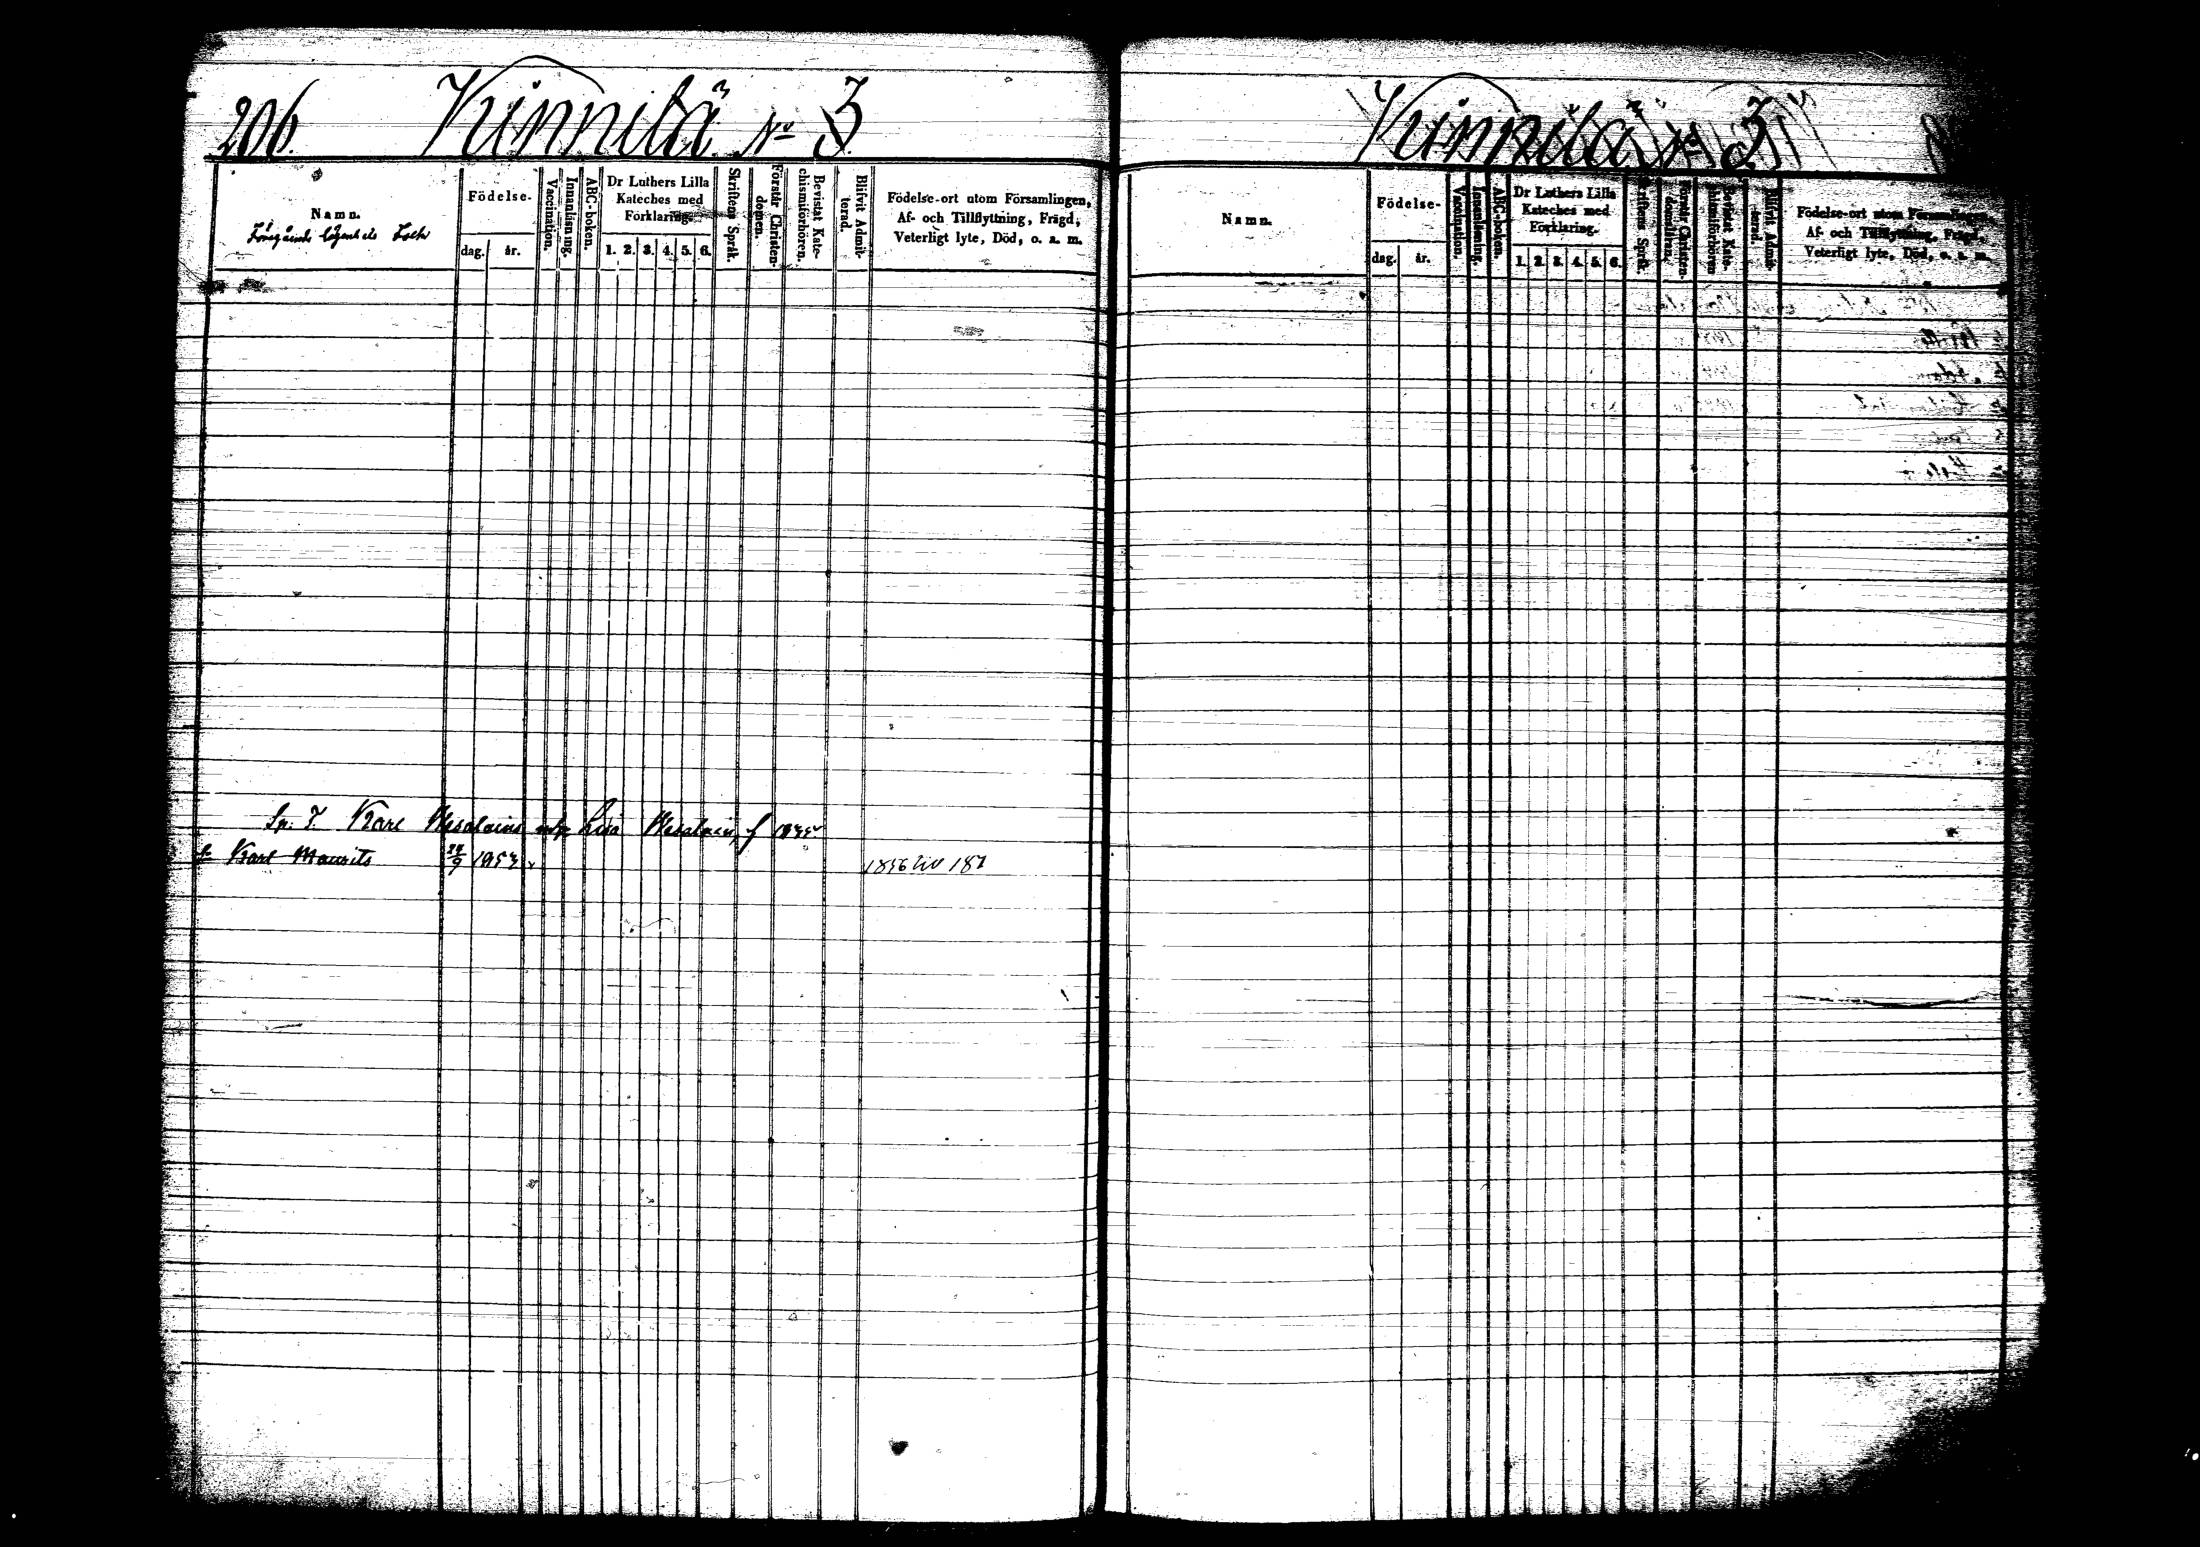 206. Kinnilä No 3.
Namn.
Föregående lägenhets Folk
Födelse-
dag. år.
Vaccination.
Innanläsning.
ABC-boken.
Dr Luthers Lilla
Kateches med
Förklaring.
1. 2. 3. 4. 5. 6.
Skriftens Språk.
Förstår Christen-
domen.
Bevistat Kate-
chismiförhören.
Blifvit Admit-
terad.
Födelse-ort utom Församlingen,
Af- och Tillflyttning, Frägd,
Veterligt lyte, Död, o. s. m.
Karl Lisa
Karl Maurits 24/9 1853 v 1856 187
Kinnilä No 3
Namn.
Födelse-
dag. år.
Vaccination.
Innanläsning.
ABC-boken.
Dr Luthers Lilla
Kateches med
Förklaring.
1. 2. 3. 4. 5. 6.
Skriftens Språk.
Förstår Christen-
domsläran.
Bevistat Kate-
chismiförhören
Blifvit Admit-
terad.
Födelse-ort utom Församlingen,
Af- och Tillflyttning, Frägd,
Veterligt lyte, Död, o. s. m.